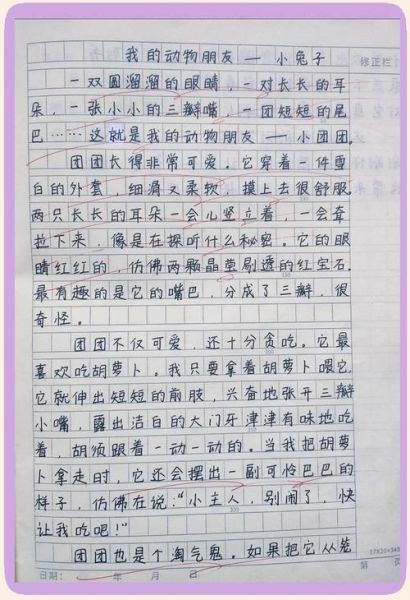 我的动物朋友——小兔子
修正栏
一双圆溜溜的眼睛，一对长长的耳
朵，一张小小的三瓣嘴，一团短短的尾
巴……这就是我的动物朋友——小团团。
团团长得非常可爱，它穿着一件雪
白的外套，细滑又柔软，摸上去很舒服
两只长长的耳朵一会儿竖立着，一会耷
拉下来，像是在探听什么秘密。它的眼
睛红红的，仿佛两颗晶莹剔透的红宝石。
最有趣的是它的嘴巴，分成了三瓣，很
奇怪。
团团不仅可爱，还十分贪吃。它最
喜欢吃胡萝卜。我只要拿着胡萝卜喂它，
它就伸出短短的前肢，兴奋地张开三瓣
小嘴，露出洁白的大门牙津津有味地吃
着，胡须跟着一动一动的。当我把胡萝
卜拿走时，它还会摆出一副可怜巴巴的
样子，仿佛在说："小主人，别闹了，快
让我吃吧！"
团团也是个淘气鬼。如果把它从笼
日期： 年 月 日
第 页